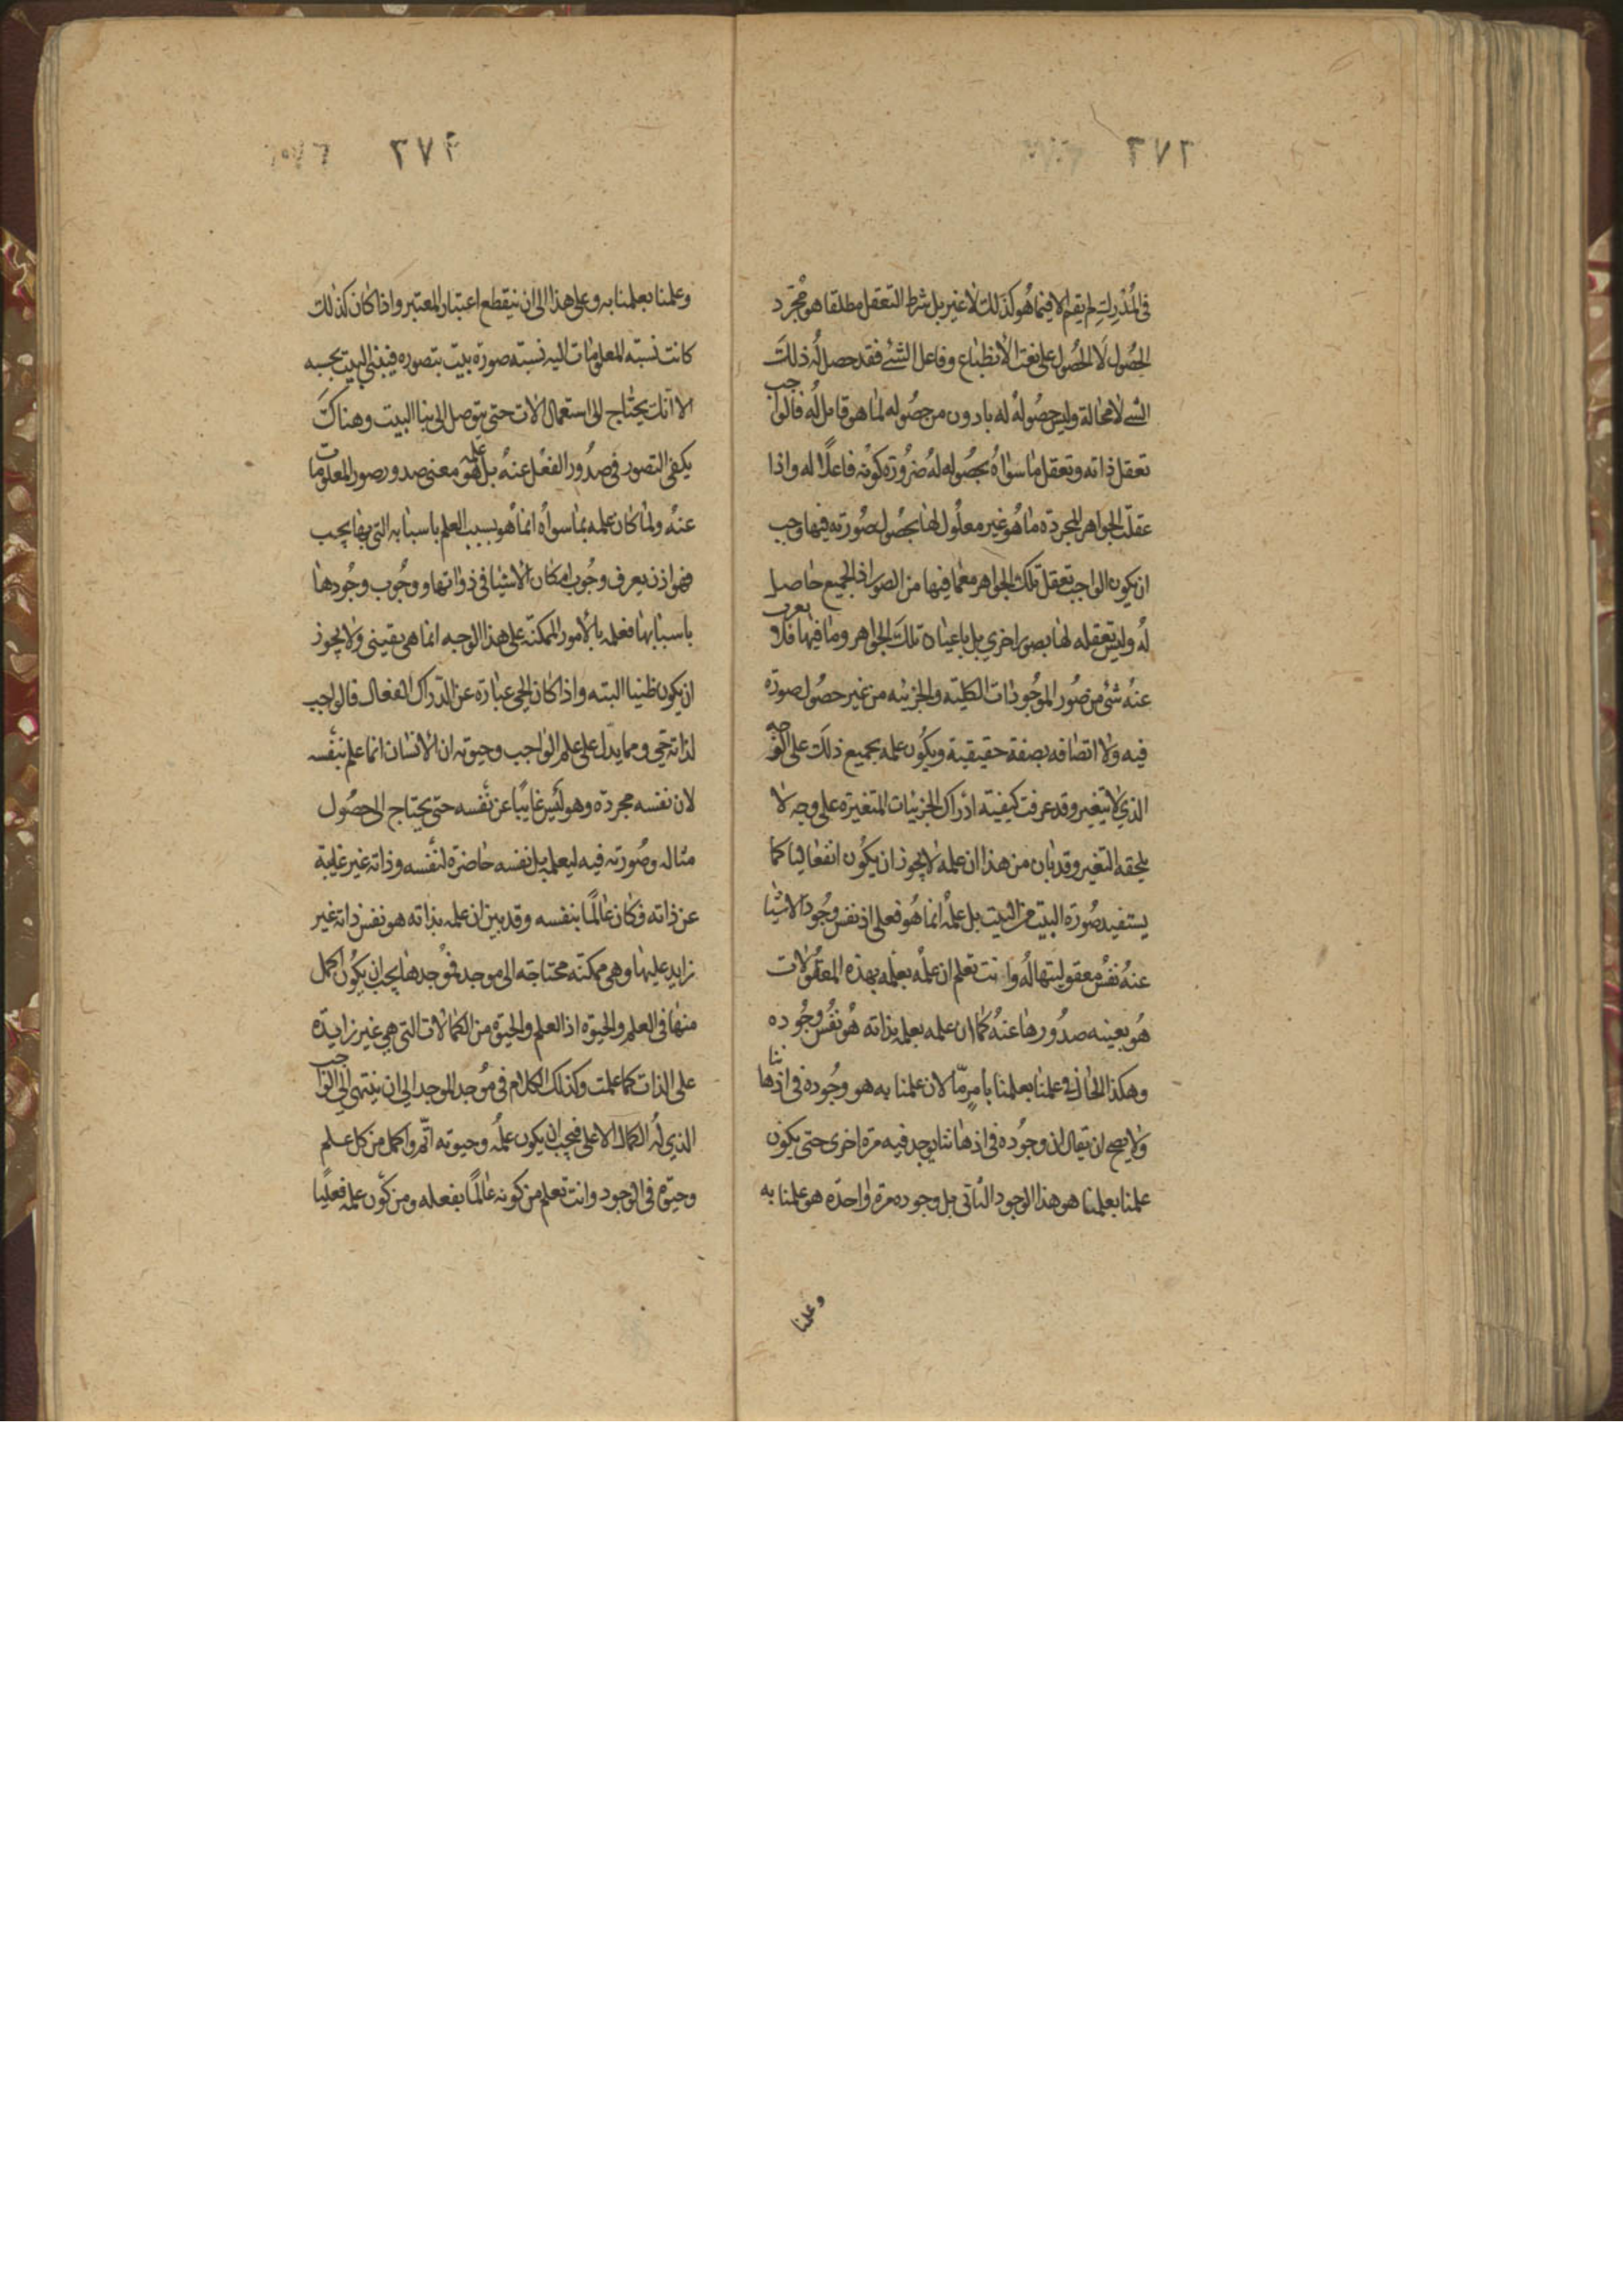 ٢٧٢
في المدرك لم يقم الا فيما هو كذلك لا غير بل شرط التعقل مطلقا هو مجرد
الحصول لا الحصول على نعت الانطباع وفاعل الشئ فقد حصل له ذلك
الشئ لا محالة وليس حصوله له بادون من حصوله لما هو قابل له فالواجب
تعقل ذاته وتعقل ما سواه بحصوله له ضرورة كونه فاعلا له واذا
عقلت الجواهر المجردة ما هو غير معلول لها بحصول صورته فيها وجب
ان يكون الواجب تعقل تلك الجواهر مع ما فيها من الصور اذ الجميع حاصل
له وليس تعقله لها بصور اخري بل باعيان تلك الجواهر وما فيها فلا يعزب
عنه شئ من صور الموجودات الكلية والجزئية من غير حصول صورة
فيه ولا اتصافه بصفة حقيقية ويكون علمه بجميع ذلك على الوجه
الذي لا يتغير وقد عرفت كيفية ادراك الجزئيات المتغيرة على وجه لا
يلحقه التغير وقد بان من هذا ان علمه لا يجوز ان يكون انفعاليا كما
يستفيد صورة البيت من البيت بل علمه انما هو فعلي اذ نفس وجود الاشيا
عنه نفس معقوليتها له وانت تعلم ان علمه بعلمه بهذه المعقولات
هو بعينه صدورها عنه كما ان علمه بعلمه بذاته هو نفس وجوده
وهكذا الحال في علمنا بعلمنا بامر ما لان علمنا به هو وجوده في اذهاننا
ولا يصح ان يقال ان وجوده في اذهاننا يوجد فيه مرة اخرى حتى يكون
علمنا بعلمنا هو هذا الوجود الثاني بل وجوده مرة واحدة هو علمنا به
وعلمنا
٢٧٣
وعلمنا بعلمنا به وعلى هذا الى ان ينقطع اعتبار المعتبر واذا كان كذلك
كانت نسبة المعلومات اليه نسبة صورة بيت بتصوره فيبني البيت بحسبه
الا انك يحتاج الى استعمال الات حتى يتوصل الى بنا البيت وهناك
يكفي التصور في صدور الفعل عنه بل علمه هو معنى صدور صور المعلومات
عنه ولما كان علمه بما سواه انما هو بسبب العلم باسبابه التي بها يجب
فهو اذن يعرف وجوب امكان الاشيا في ذواتها ووجوب وجودها
باسبابها فعلمه بالامور الممكنة على هذا الوجه انما هي يقيني ولا يجوز
ان يكون ظنيا البته واذا كان الحي عبارة عن الدراك الفعال فالواجب
لذاته حي ومما يدل على علم الواجب وحيوته ان الانسان انما علم بنفسه
لان نفسه مجردة وهو ليس غايبا عن نفسه حتى يحتاج الى حصول
مثاله وصورته فيه ليعلمه بل نفسه حاضرة لنفسه وذاته غير غايبة
عن ذاته فكان عالما بنفسه وقد بين ان علمه بذاته هو نفس ذاته غير
زايد عليها وهي ممكنة محتاجة الى موجد فموجدها يجب ان يكون اكمل
منها في العلم والحيوة اذ العلم والحيوة من الكمالات التي هي غير زايدة
على الذات كما علمت وكذلك الكلام في موجد الموجد الي ان ينتهي الى الواجب
الذي له الكمال الاعلى فيجب ان يكون علمه وحيوته اتم واكمل من كل علم
وحيوة في الوجود وانت تعلم من كونه عالما بفعله ومن كون علمه فعليا